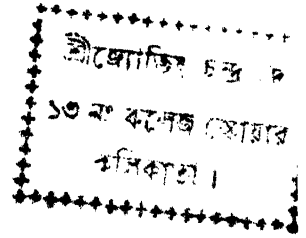 শ্রীজ্যোতিষ চন্দ্র
১৩ নং কলেজ স্কোয়ার
কলিকাতা ।